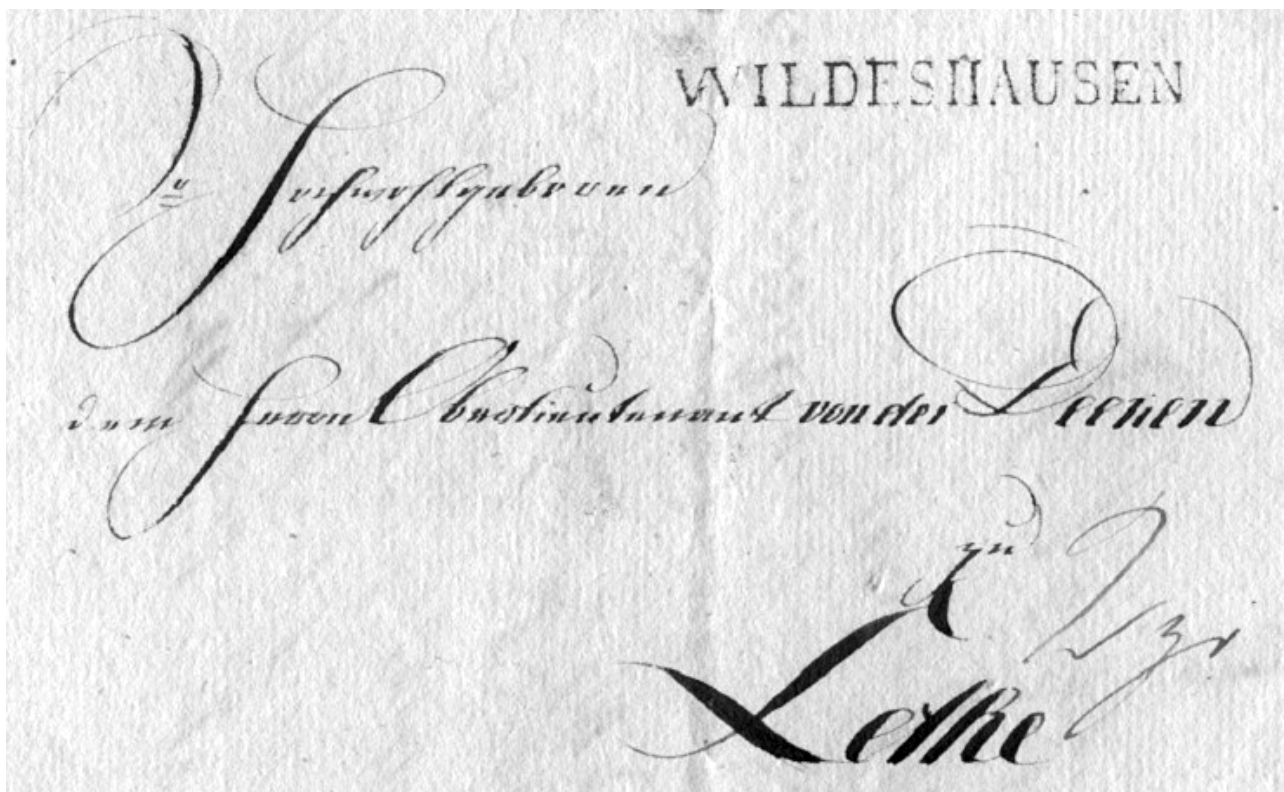 WILDESHAUSEN
Hochwohlgeboren
dem Herrn Oberstlieutenant von der Decken
zu
Lethe